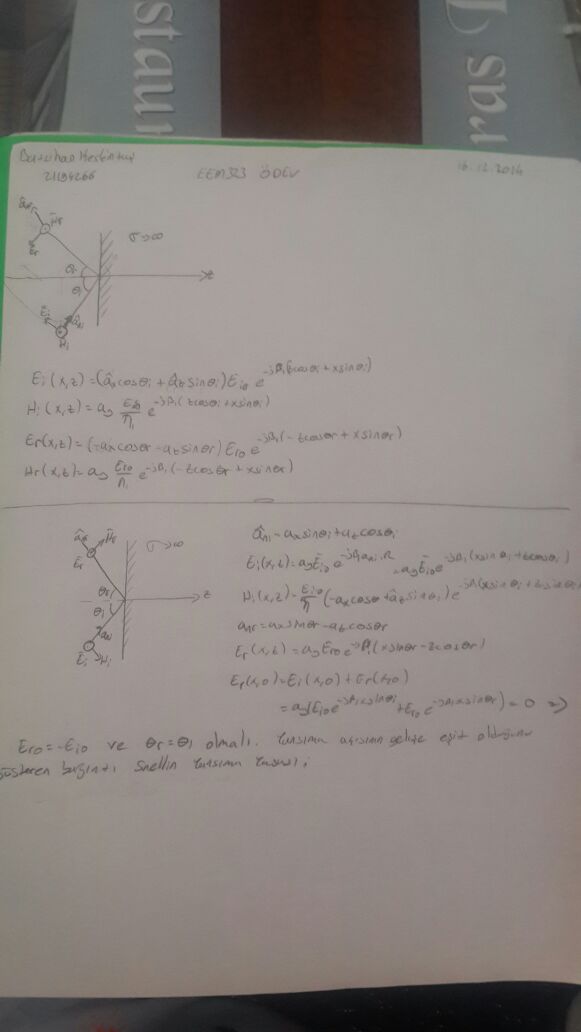 staur
sat
21194266
EEM323 ÖDEV
16.12.2014
ânr
Hr
Er
σ→∞
θr
θi
z
Ei
âni
Hi
Ei(x,z)=(âxcosθi+âzsinθi)Ei0 e^-jβ1(zcosθi+xsinθi)
Hi(x,z)=ay Ei0/η1 e^-jβ1(zcosθi+xsinθi)
Er(x,z)=(-axcosθr-azsinθr)Er0 e^-jβ1(-zcosθr+xsinθr)
Hr(x,z)=ay Er0/η1 e^-jβ1(-zcosθr+xsinθr)
Hr
Er
σ→∞
θr
θi
z
Ei
Hi
âni=axsinθi+azcosθi
Ei(x,z)=ayEi0e^-jβ1ani.R=ayEi0e^-jβ1(xsinθi+zcosθi)
Hi(x,z)=Ei0/η(-axcosθ+âzsinθi)
anr=axsinθr-azcosθr
Er(x,z)=ayEr0e^-jβ1(xsinθr-zcosθr)
Er(x,0)=Ei(x,0)+Er(x,0)
=ay(Ei0e^-jβ1xsinθi+Er0e^-jβ1xsinθr)=0 ⇒
Er0=-Ei0 ve θr=θi olmalı. Yansıma açısının gelişe eşit olduğunu
gösteren bağıntı Snellin yansıma yasası